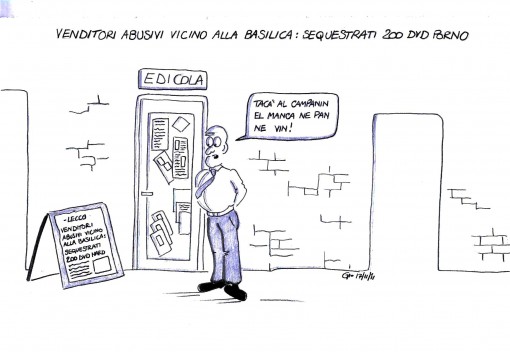 VENDITORI ABUSIVI VICINO ALLA BASILICA: SEQUESTRATI 200 DVD PORNO
EDICOLA
TACA' AL CAMPANIN
EL MANCA NE PAN
NE VIN!
- LECCO
VENDITORI
ABUSIVI VICINO
ALLA BASILICA:
SEQUESTRATI
200 DVD HARD